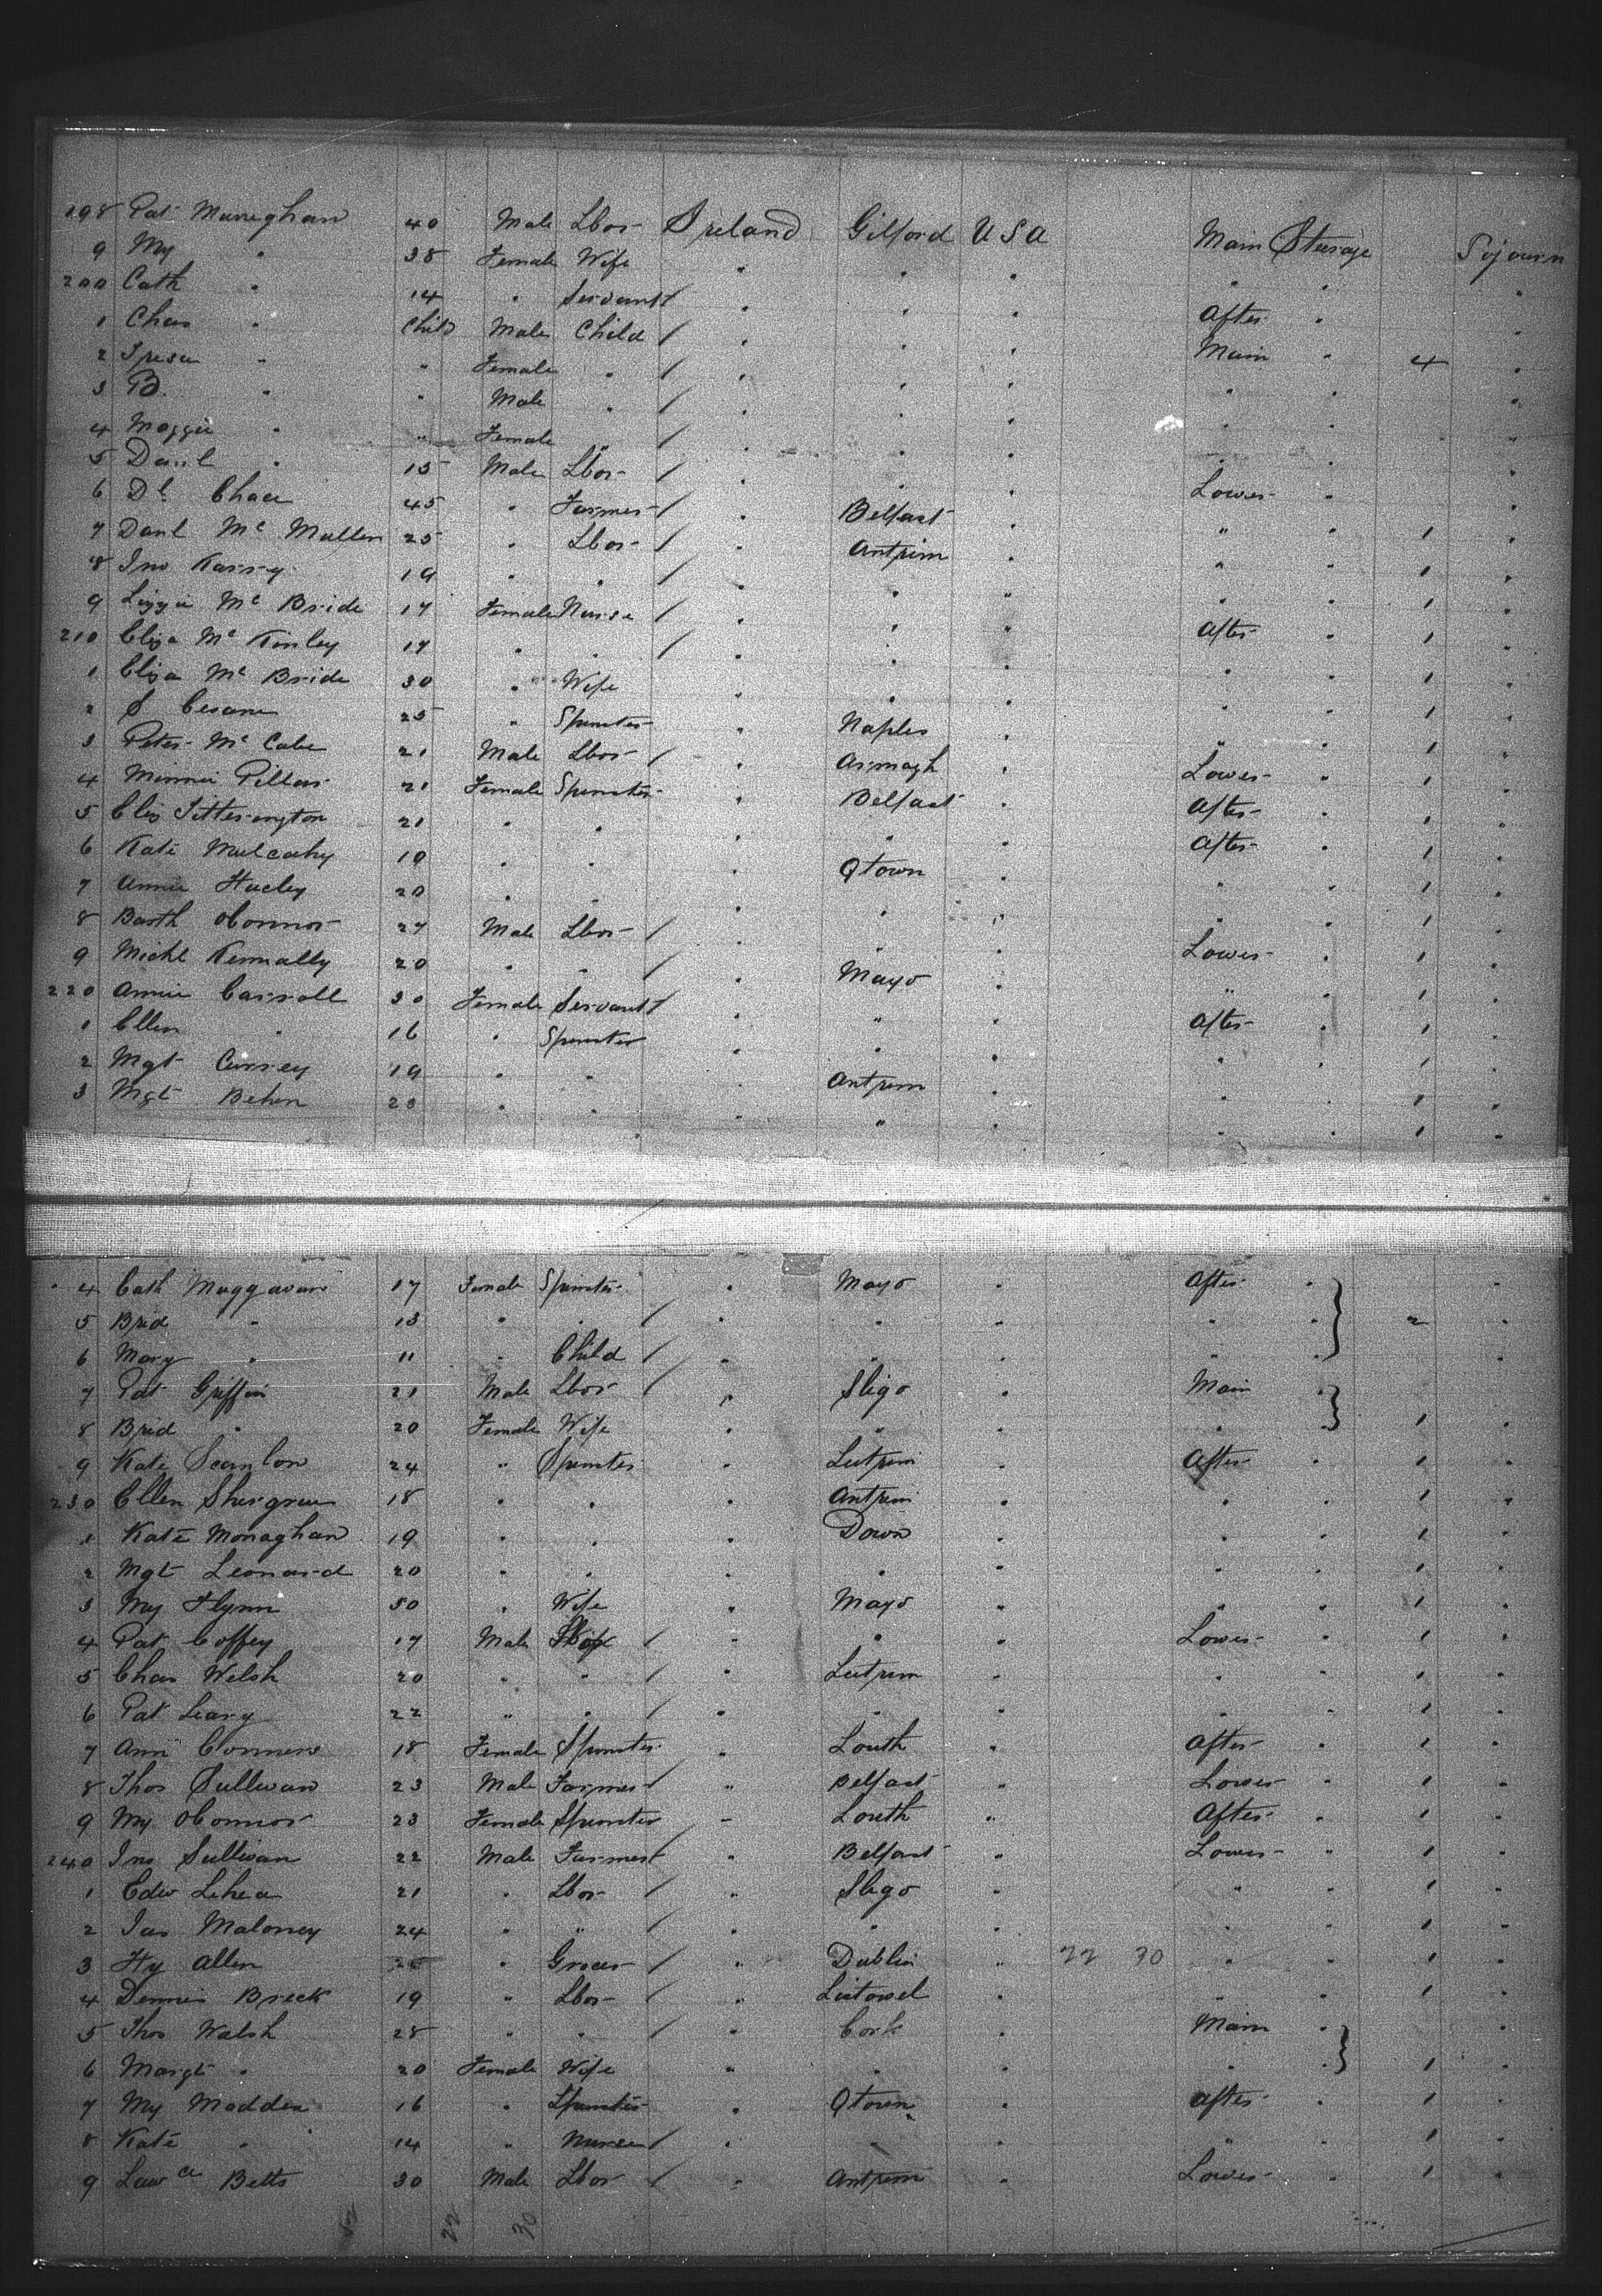 198 Pat Muneghan 40 Male Lbor Ireland Gilford U S A Main Steerage Sojourn
9 My " 38 Female Wife " " " " " "
200 Cath " 14 " Servant / " " " After " "
1 Chas " Child Male Child / " " " Main " 4 "
2 " " Female " / " " " " " "
3 B. " " Male " / " " " " " "
4 Maggie " " Female " / " " " " " "
5 Danl " 15 Male Lbor / " " " Lower " "
6 Dl Chace 45 " Farmer / " Belfast " " " 1 "
7 Danl Mc Mullen 25 " Lbor / " Antrim " " " 1 "
8 Jno Karry 19 " " / " " " " " 1 "
9 Lizzie Mc Bride 17 Female Nurse / " " " After " 1 "
210 Eliza Mc Kinley 17 " " / " " " " " 1 "
1 Eliza Mc Bride 30 " Wife " " " " " 1 "
2 S Cesane 25 " Spinster " Naples " " " 1 "
3 Peter Mc Cabe 21 Male Lbor / " Armagh " Lower " 1 "
4 Minnie Pillar 21 Female Spinster " Belfast " After " 1 "
5 Eliz Titterington 21 " " " " " After " 1 "
6 Kate Mulcahy 19 " " " Qtown " " " 1 "
7 Annie Hucley 20 " " " " " " " 1 "
8 Barth OConnor 27 Male Lbor / " " " Lower " 1 "
9 Michl Kennally 20 " " / " Mayo " " " 1 "
220 Annie Carroll 30 Female Servant / " " " After " 1 "
1 Ellen " 16 " Spinster " " " " " 1 "
2 Mgt Currey 19 " " " Antrim " " " 1 "
3 Mgt Behen 20 " " " " " " " 1 "
4 Cath Muggavan 17 Female Spinster " Mayo " After " "
5 Brid " 13 " " / " " " " " 2 "
6 Mary " 11 " Child / " " " " " "
7 Pat Griffin 21 Male Lbor / " Sligo " Main "
8 Brid " 20 Female Wife " " " " " 1 "
9 Kate Scanlon 24 " Spinster " Leitrim " After " 1 "
230 Ellen Shergrue 18 " " " Antrim " " " 1 "
1 Kate Monaghan 19 " " " Down " " " 1 "
2 Mgt Leonard 20 " " " " " " " 1 "
3 My Flynn 50 " Wife " Mayo " " " 1 "
4 Pat Coffey 17 Male Lbor / " " " Lower " 1 "
5 Chas Welsh 20 " " / " Leitrim " " " 1 "
6 Pat Leary 22 " " / " " " " " 1 "
7 Ann Conners 18 Female Spinster " Louth " After " 1 "
8 Thos Sullivan 23 Male Farmer / " Belfast " Lower " 1 "
9 My OConnor 23 Female Spinster " Louth " After " 1 "
240 Jno Sullivan 22 Male Farmer / " Belfast " Lower " 1 "
1 Edw Lehea 21 " Lbor / " Sligo " " " 1 "
2 Jas Maloney 24 " " / " " " " " 1 "
3 Hy Allen " Grocer / " Dublin " 22 30 " " 1 "
4 Dennis Breck 19 " Lbor / " Listowel " " " 1 "
5 Thos Walsh 28 " " / " Cork " Main " "
6 Margt " 20 Female Wife " " " " " 1 "
7 My Madden 16 " Spinster " Qtown " After " 1 "
8 Kate " 14 " Nurse / " " " " " 1 "
9 Lawce Betts 30 Male Lbor / " Antrim " Lower " 1 "
52 22 30